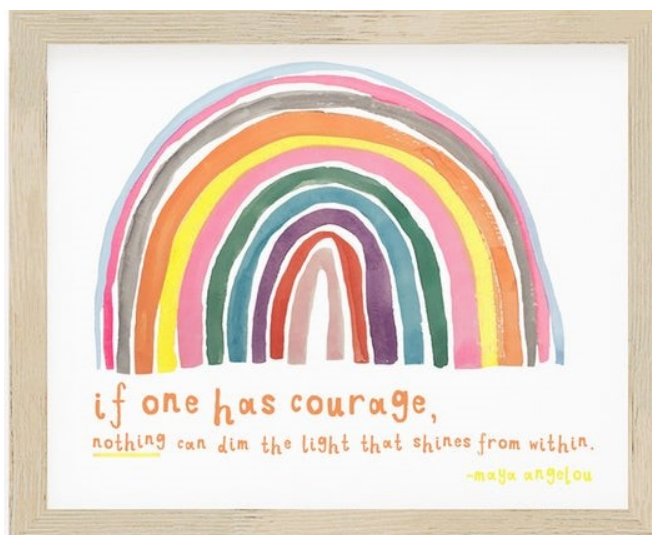 if one has courage,
nothing can dim the light that shines from within.
-maya angelou